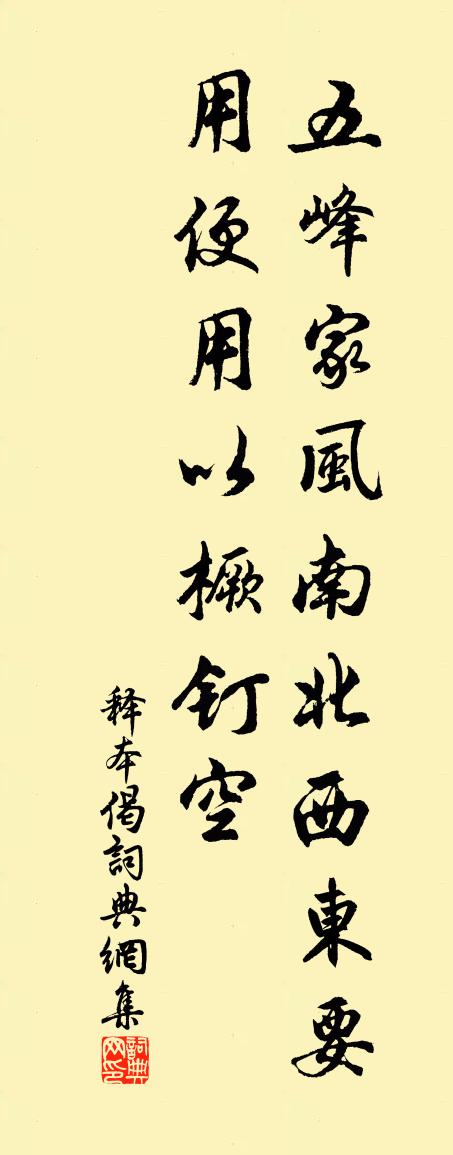 五峰家風南北西東要
用便用以橛釘空
释本偈詞典網集
詞典网印